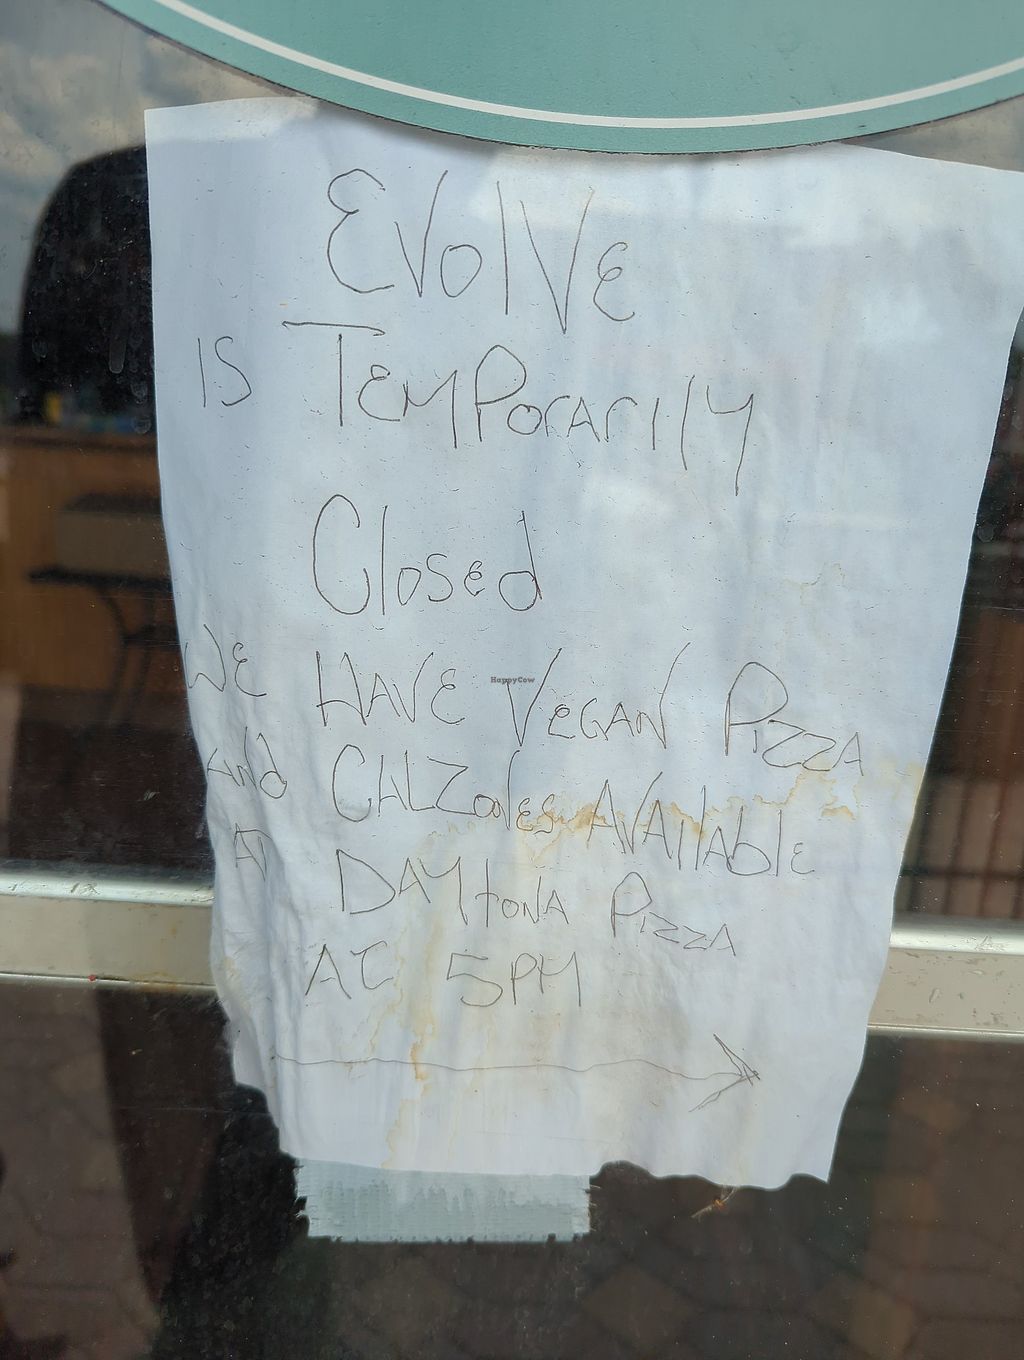 Evolve
is Temporarily
Closed
We Have Vegan Pizza
HappyCow
and Calzones Available
at Daytona Pizza
At 5PM